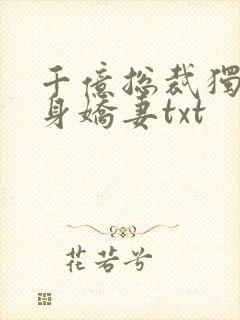 千億总裁獨
身嬌妻txt
花若兮